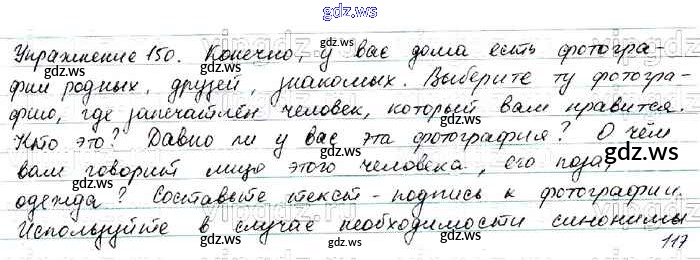 gdz.ws
Упражнение 150. Конечно, у вас дома есть фотогра-
фии родных, друзей, знакомых. Выберите ту фотогра-
фию, где запечатлён человек, который вам нравится.
Кто это? Давно ли у вас эта фотография? О чём
вам говорит лицо этого человека, его поза,
одежда? Составьте текст-подпись к фотографии.
Используйте в случае необходимости синонимы
117